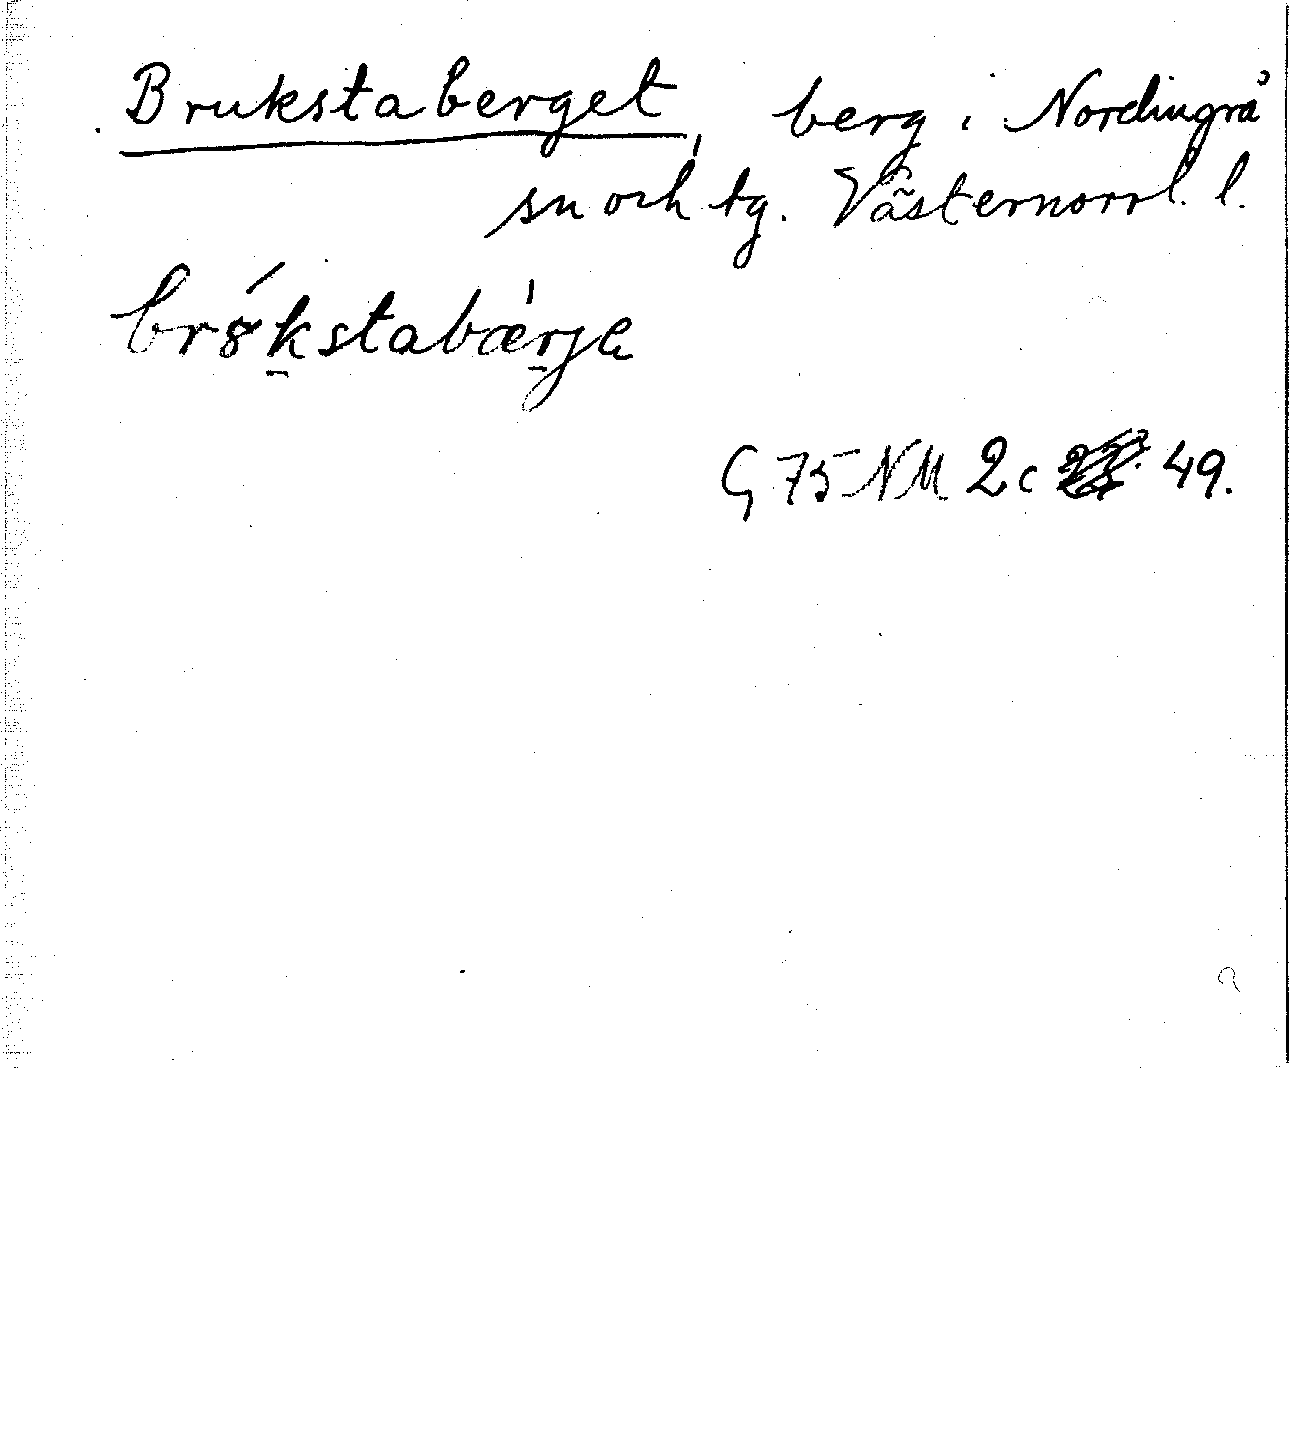 Brukstaberget, berg i Nordingrå
sn och tg. Västernorrl. l.
br8́k̲stabæ̀r̲je
G 75 NM 2c 49.